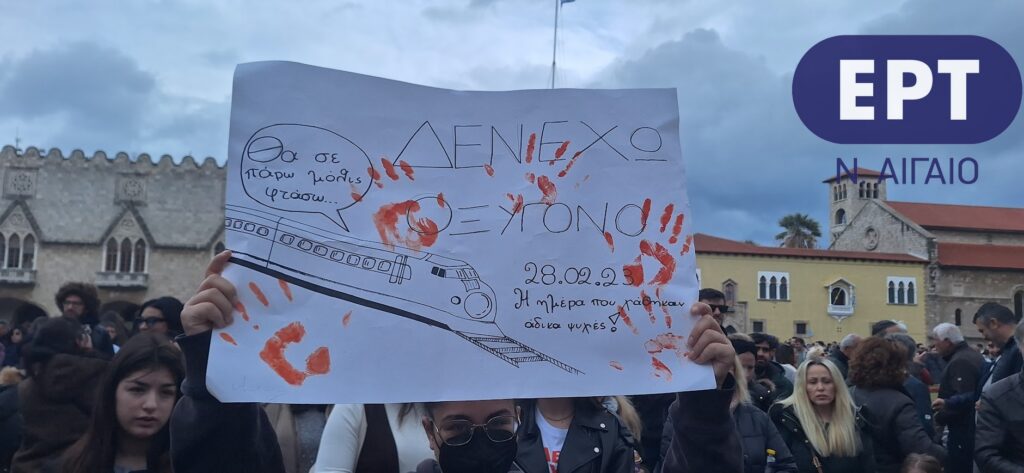 Θα σε
πάρω μόλις
φτάσω...
ΔΕΝ ΕΧΩ
ΟΞΥΓΟΝΟ
28.02.23
Η ημέρα που χάθηκαν
άδικα ψυχές!
ΕΡΤ
Ν. ΑΙΓΑΙΟ